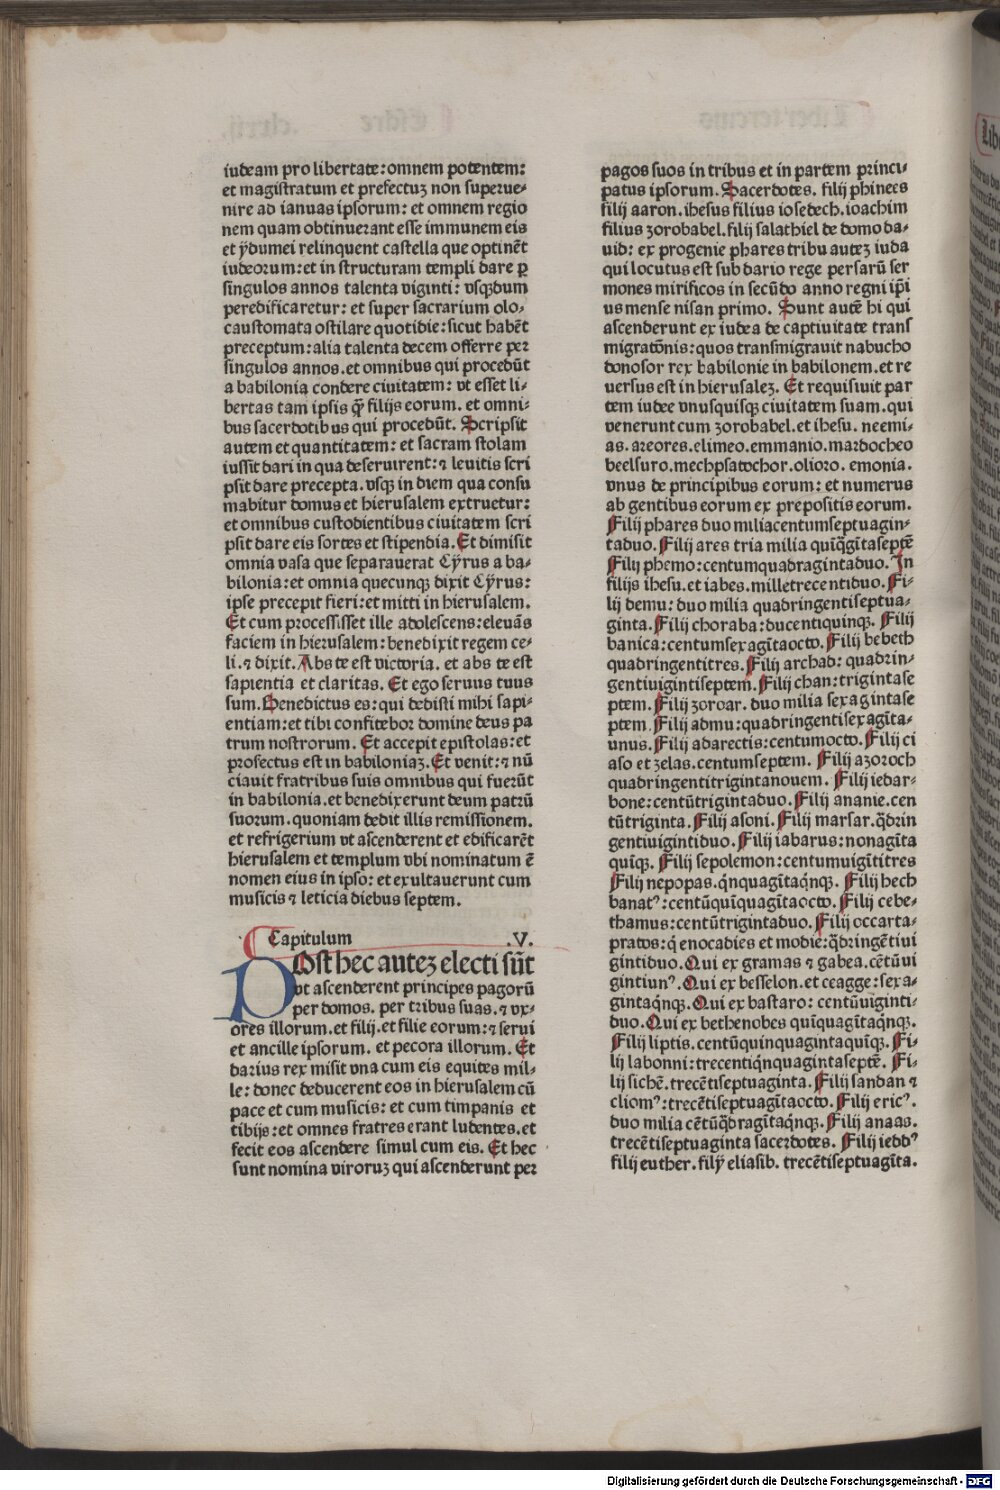 iudeam pro libertate: omnem potentem:
et magistratum et prefectuꝫ non superue⸗
nire ad ianuas ipsorum: et omnem regio
nem quam obtinuerant esse immunem eis
et ẏdumei relinquent castella que optinēt
iudeorum: et in structuram templi dare ꝑ
singulos annos talenta viginti: vsqꝫdum
peredificaretur: et super sacrarium olo⸗
caustomata ostilare quotidie: sicut habēt
preceptum: alia talenta decem offerre per
singulos annos. et omnibus qui procedūt
a babilonia condere ciuitatem: vt esset li⸗
bertas tam ipsis qꝫ̄ filijs eorum. et omni⸗
bus sacerdotibus qui procedūt. Scripsit
autem et quantitatem: et sacram stolam
iussit dari in qua deseruirent: ⁊ leuitis scri
psit dare precepta. vsqꝫ in diem qua consu
mabitur domus et hierusalem extruetur:
et omnibus custodientibus ciuitatem scri
psit dare eis sortes et stipendia. Et dimisit
omnia vasa que separauerat Cẏrus a ba⸗
bilonia: et omnia quecunqꝫ dixit Cẏrus:
ipse precepit fieri: et mitti in hierusalem.
Et cum processisset ille adolescens: eleuās
faciem in hierusalem: benedixit regem ce⸗
li. ⁊ dixit. Abs te est victoria. et abs te est
sapientia et claritas. Et ego seruus tuus
sum. Benedictus es: qui dedisti mihi sapi⸗
entiam: et tibi confitebor domine deus pa
trum nostrorum. Et accepit epistolas: et
profectus est in babiloniaꝫ. Et venit: ⁊ nū
ciauit fratribus suis omnibus qui fuerūt
in babilonia. et benedixerunt deum patrū
suorum. quoniam dedit illis remissionem.
et refrigerium vt ascenderent et edificarēt
hierusalem et templum vbi nominatum ē
nomen eius in ipso: et exultauerunt cum
musicis ⁊ leticia diebus septem.
Capitulum .V.
Post hec auteꝫ electi sūt
vt ascenderent principes pagorū
per domos. per tribus suas. ⁊ vx⸗
ores illorum. et filij. et filie eorum: ⁊ serui
et ancille ipsorum. et pecora illorum. Et
darius rex misit vna cum eis equites mil⸗
le: donec deducerent eos in hierusalem cū
pace et cum musicis: et cum timpanis et
tibijs: et omnes fratres erant ludentes. et
fecit eos ascendere simul cum eis. Et hec
sunt nomina viroruꝫ qui ascenderunt per
pagos suos in tribus et in partem princi⸗
patus ipsorum. Sacerdotes. filij phinees
filij aaron. ihesus filius iosedech. ioachim
filius zorobabel. filij salathiel de domo da⸗
uid: ex progenie phares tribu auteꝫ iuda
qui locutus est sub dario rege persarū ser
mones mirificos in secūdo anno regni ip̄i
us mense nisan primo. Sunt autē hi qui
ascenderunt ex iudea de captiuitate trans
migratōnis: quos transmigrauit nabucho
donosor rex babilonie in babilonem. et re
uersus est in hierusaleꝫ. Et requisiuit par
tem iudee vnusquisqꝫ ciuitatem suam. qui
venerunt cum zorobabel. et ihesu. neemi⸗
as. azeores. elimeo. emmanio. mardocheo
beelsuro. mechpsatochor. olioro. emonia.
vnus de principibus eorum: et numerus
ab gentibus eorum ex prepositis eorum.
Filij phares duo miliacentumseptuagin⸗
taduo. Filij ares tria milia quīqꝫgītaseptē
Filij phemo: centumquadragintaduo. In
filijs ihesu. et iabes. milletrecentiduo. Fi⸗
lij demu: duo milia quadringentiseptua⸗
ginta. Filij choraba: ducentiquinqꝫ. Filij
banica: centumsexagītaocto. Filij bebeth
quadringentitres. Filij archad: quadrin⸗
gentiuigintiseptem. Filij chan: trigintase
ptem. Filij zoroar. duo milia sexagintase
ptem Filij admu: quadringentisexagīta⸗
unus. Filij adarectis: centumocto. Filij ci
aso et zelas. centumseptem. Filij azoroch
quadringentitrigintanouem. Filij iedar⸗
bone: centūtrigintaduo. Filij ananie. cen
tūtriginta. Filij asoni. Filij marsar. q̄drin
gentiuigintiduo. Filij iabarus: nonagīta
quīqꝫ. Filij sepolemon: centumuigītitres
Filij nepopas. qͥnquagītaqͥnqꝫ. Filij hech
banatꝰ: centūquīquagītaocto. Filij cebe⸗
thamus: centūtrigintaduo. Filij occarta⸗
pratos: qͥ enocadies et modie: q̄dringētiui
gintiduo. Qui ex gramas ⁊ gabea. cētūui
gintiunꝰ. Qui ex besselon. et ceagge: sexa⸗
gintaqͥnqꝫ. Qui ex bastaro: centūuiginti⸗
duo. Qui ex bethenobes quīquagītaqͥnqꝫ.
Filij liptis. centūquinquagintaquīqꝫ. Fi⸗
lij labonni: trecentiqͥnquagintaseptē. Fi⸗
lij sichē. trecētiseptuaginta. Filij sandan ⁊
cliomꝰ: trecētiseptuagītaocto. Filij ericꝰ.
duo milia cētūq̄dragītaqͥnqꝫ. Filij anaas.
trecētiseptuaginta sacerdotes. Filij ieddꝰ
filij euther. filẏ eliasib. trecētiseptuagīta.
Digitalisierung gefördert durch die Deutsche Forschungsgemeinschaft - DFG